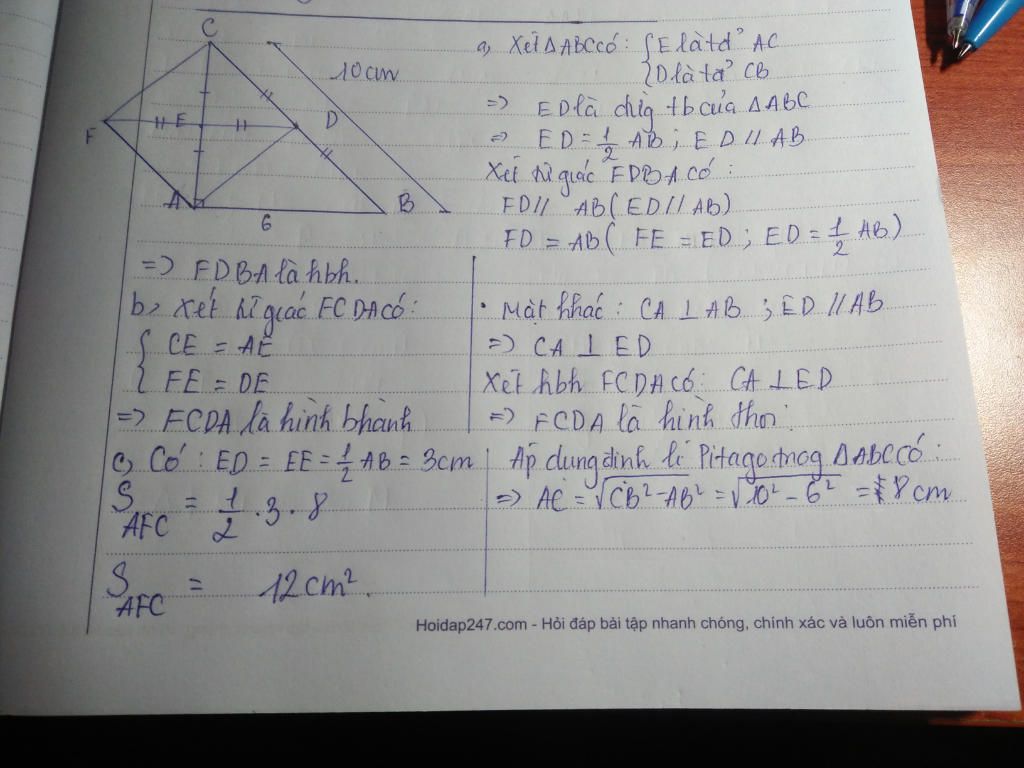 C
10cm
F
E
D
A
B
6
a, Xét ΔABC có: { E là tđ' AC
{ D là tđ' CB
=> ED là đường tb của ΔABC
=> ED = 1/2 AB ; ED // AB
Xét tứ giác FDBA có :
FD // AB ( ED // AB )
FD = AB ( FE = ED ; ED = 1/2 AB )
=> FDBA là hbh.
b, Xét tứ giác FCDA có:
{ CE = AE
{ FE = DE
=> FCDA là hình bhành
• Mặt khác : CA ⊥ AB ; ED // AB
=> CA ⊥ ED
Xét hbh FCDA có: CA ⊥ ED
=> FCDA là hình thoi
c, Có : ED = EE = 1/2 AB = 3cm
S AFC = 1/2 . 3 . 8
S AFC = 12cm².
Áp dụng định lí Pitago trog ΔABC CÓ :
=> AC = √CB² - AB² = √10² - 6² = 8cm
Hoidap247.com - Hỏi đáp bài tập nhanh chóng, chính xác và luôn miễn phí